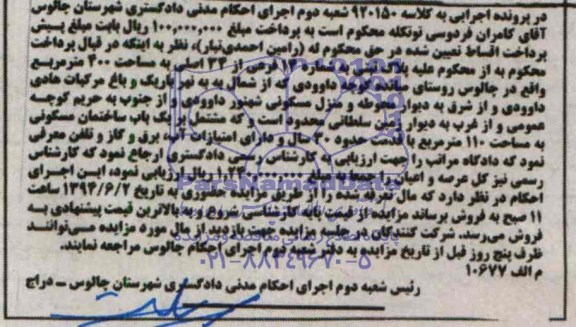 در پرونده اجرایی به کلاسه ۹۲۰۱۵۰ شعبه دوم اجرای احکام مدنی دادگستری شهرستان چالوس
آقای کامران فردوسی تونکله محکوم است به پرداخت مبلغ ۱۰۰,۰۰۰,۰۰۰ ریال بابت مبلغ پیش
پرداخت اقساط تعیین شده در حق محکوم له (رامین احمدی‌تبار)، نظر به اینکه در قبال پرداخت
محکوم به از محکوم علیه پلاک ثبتی به شماره فرعی از ۲۳ اصلی به مساحت ۴۰۰ مترمربع
واقع در چالوس روستای کوچه داوودی که از شمال به نهر باریک و باغ مرکبات هادی
داوودی و از شرق به دیوار محوطه و منزل مسکونی داوودی و از جنوب به حریم کوچه
عمومی و از غرب به دیوار زمین سلطانی محدود است و که مشتمل بر یک باب ساختمان مسکونی
به مساحت ۱۱۰ مترمربع با قدمت حدود سال و دارای امتیازات آب، برق و گاز و تلفن معرفی
نمود که دادگاه مراتب را جهت ارزیابی به کارشناس رسمی دادگستری ارجاع نمود که کارشناس
رسمی نیز کل عرصه و اعیان را جمعا به مبلغ ریال ارزیابی نموده، این اجرای
احکام در نظر دارد که مال تعرفه شده را از طریق مزایده حضوری به تاریخ ۱۳۹۴/۶/۲ ساعت
۱۱ صبح به فروش برساند مزایده از قیمت پایه کارشناسی شروع و به بالاترین قیمت پیشنهادی به
فروش می‌رسد، شرکت کنندگان در جلسه مزایده جهت بازدید از مال مورد مزایده می‌توانند
ظرف پنج روز قبل از تاریخ مزایده به دفتر شعبه دوم اجرای احکام چالوس مراجعه نمایند.
م الف ۱۰۶۷۷
رئیس شعبه دوم اجرای احکام مدنی دادگستری شهرستان چالوس ــ دراج
ParsNamadData
۰۲۱-۸۸۳۴۹۶۷۰-۵